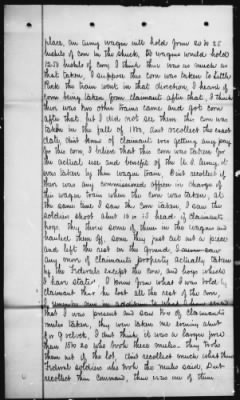 place, an army wagon will hold from 20 to 25
bushels of corn in the shuck. 50 wagons would hold
1250 bushels of corn, I think this was as much as
that taken, I suppose this corn was taken to Little
Rock the train went in that direction, I heard of
corn being taken from claimant after that, I think
there was two other trains came and got corn
after that but I did not see them this corn was
taken in the fall of 1863, dont recollect the exact
date, dont know of claimant ever getting any pay
for this corn, I think that this corn was taken for
the actual use and benefit of the U.S. Army, it
was taken by this wagon train, I dont recollect if
there was any commissioned officer in charge of
this wagon train when the corn was taken, at
the same time I saw the corn taken, I saw the
soldiers shoot about 10 or 15 head of claimants
hogs, they threw some of them in the wagons and
hauled them off, some they just cut out a piece
and left the rest on the ground, I never saw
any more of claimants property actually taken
by the Federals except the corn, and hogs which
I have stated. I know from what I was told by
claimant that he lost all the rest of the corn
that I was present and saw two of claimants
mules taken, they were taken one evening about
o'clock, I dont think it was a larger force
than 15 or 20 who took these mules. They took
them out of the lot, I dont recollect much what these
Federal soldiers who took the mules said. Dont
recollect their command, there was one of them